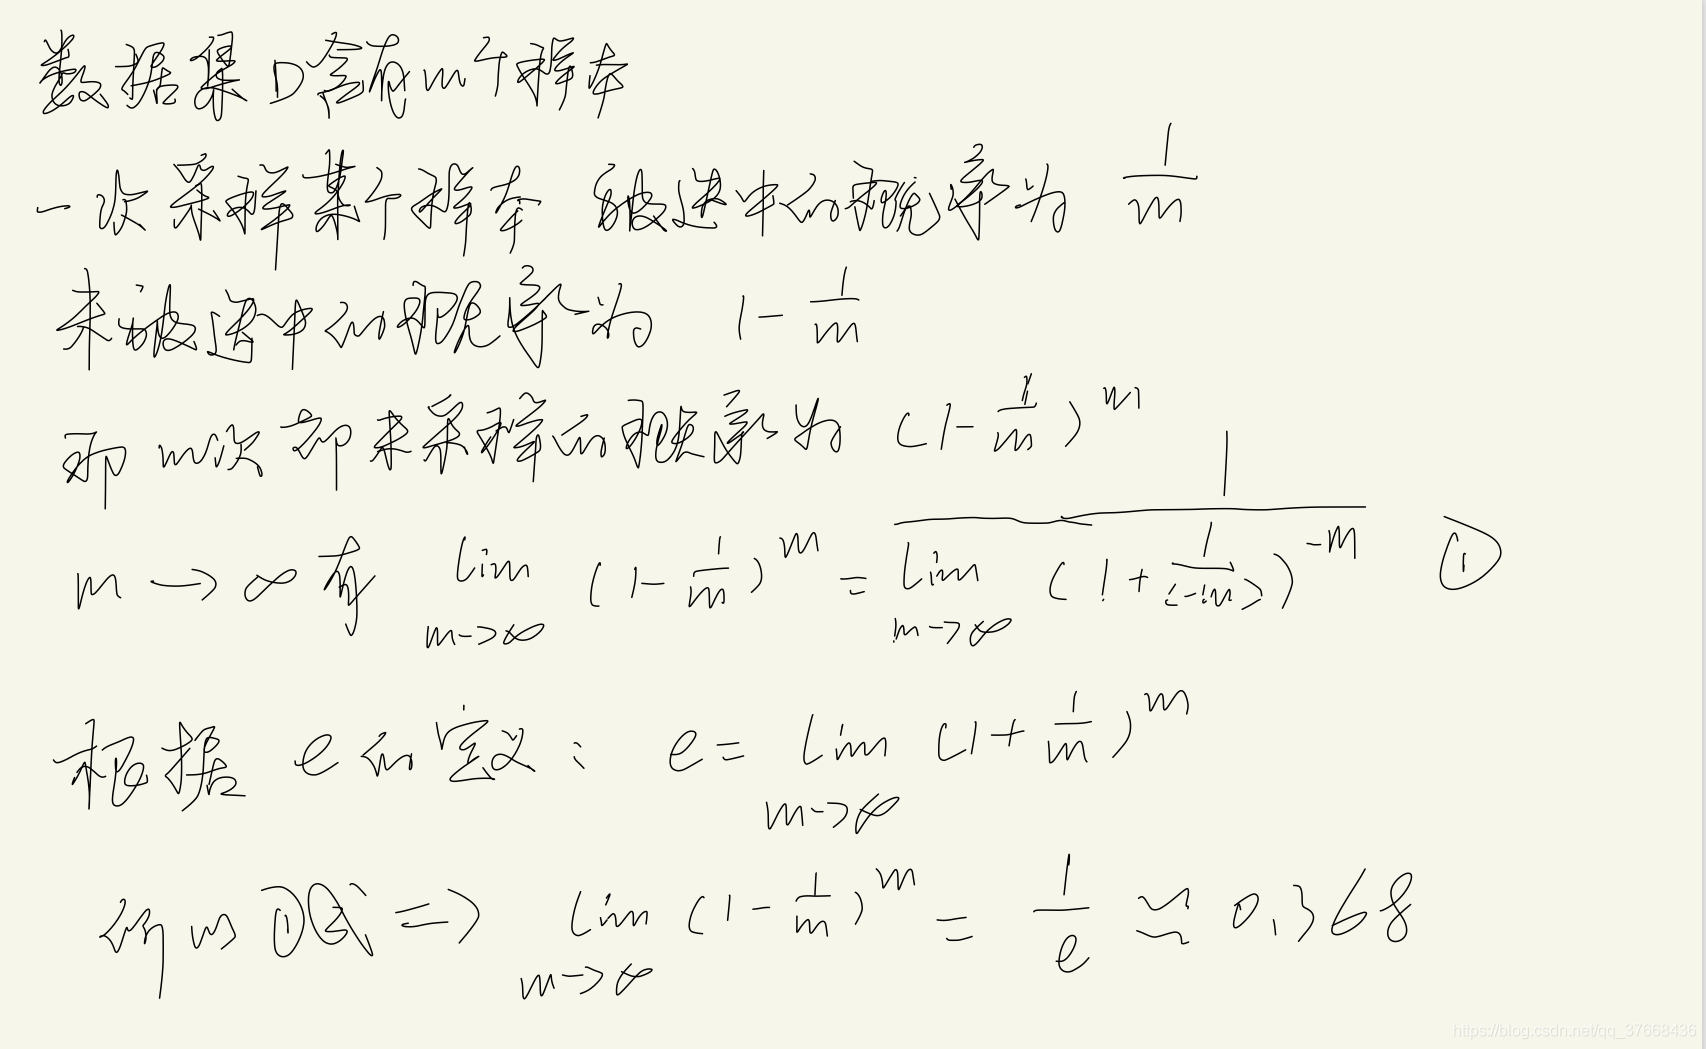 数据集D含有m个样本
一次采样某个样本 被选中的概率为 1/m
未被选中的概率为 1-1/m
那m次都未采样的概率为 (1-1/m)^m
m→∞有 lim_{m→∞} (1-1/m)^m = 1/(lim_{m→∞} (1+1/(-m))^{-m}) ①
根据 e的定义: e= lim_{m→∞} (1+1/m)^m
所以 ①式 => lim_{m→∞} (1-1/m)^m = 1/e ≈ 0.368
https://blog.csdn.net/qq_37668436